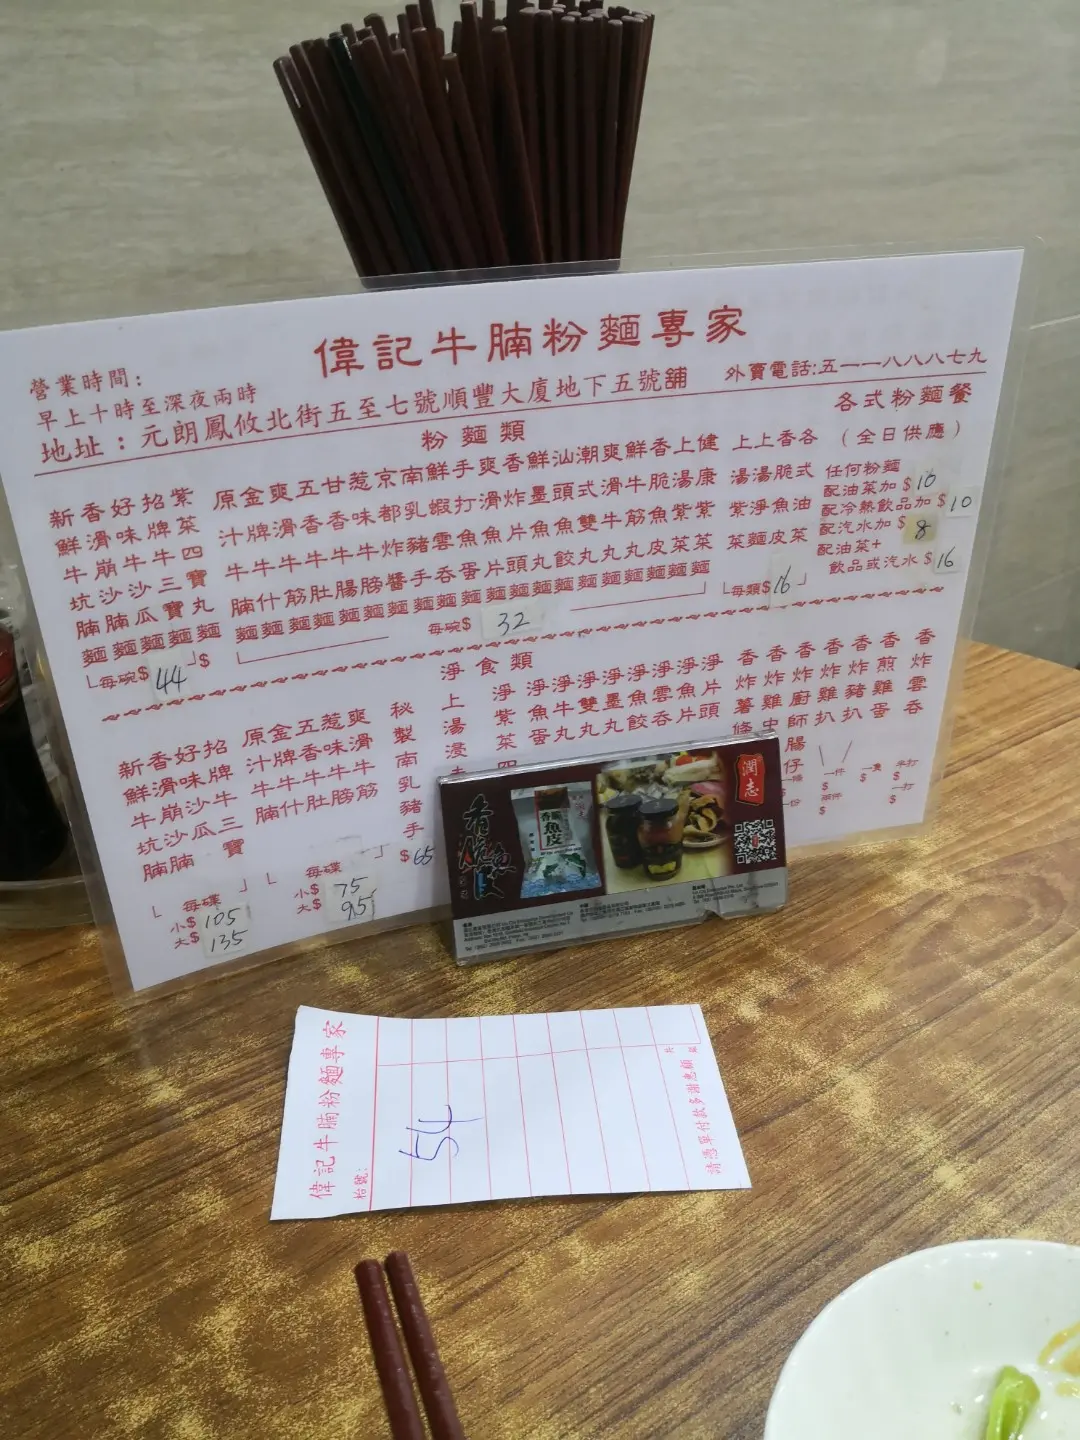 偉記牛腩粉麵專家
營業時間:
早上十時至深夜兩時
外賣電話:五一一八八八七九
地址：元朗鳳攸北街五至七號順豐大廈地下五號舖
粉麵類
新鮮牛坑腩麵
香滑崩沙腩麵
好味牛沙瓜麵
招牌牛三寶麵
紫菜四寶丸麵
每碗$44
$
原汁牛腩麵
金牌牛什麵
爽滑牛筋麵
五香牛肚麵
甘香牛腸麵
惹味牛膀麵
京都炸醬麵
南乳豬手麵
鮮蝦雲吞麵
手打魚蛋麵
爽滑魚片麵
香炸片頭麵
鮮墨魚丸麵
汕頭魚餃麵
潮式雙丸麵
爽滑牛丸麵
鮮牛筋丸麵
香脆魚皮麵
上湯紫菜麵
健康紫菜麵
每碗$ 32
上湯紫菜
上湯淨麵
香脆魚皮
各式油菜
每類$16
各式粉麵餐
(全日供應)
任何粉麵
配油菜加$10
配冷熱飲品加$10
配汽水加$8
配油菜+
飲品或汽水$16
淨食類
新鮮牛坑腩
香滑崩沙腩
好味牛沙瓜
招牌牛三寶
每碟
小$105
大$135
原汁牛腩
金牌牛什
五香牛肚
惹味牛膀
爽滑牛筋
每碟
小$75
大$95
秘製南乳豬手
$65
上湯浸
淨紫菜四
淨魚蛋
淨牛丸
淨雙丸
淨墨丸
淨魚餃
淨雲吞
淨魚片
淨片頭
香炸薯條
香炸雞中
香炸廚師腸仔
香炸雞扒
香炸豬扒
香煎雞蛋
香炸雲吞
潤志
香脆魚皮
偉記牛腩粉麵專家
枱號:
54
請憑單付款多謝惠顧